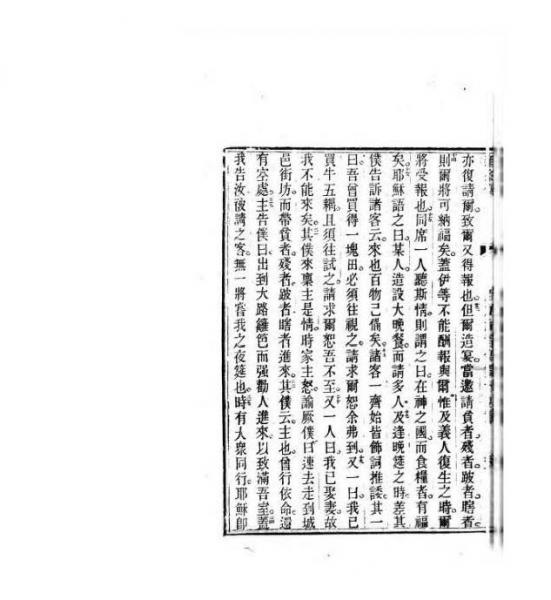 亦復請爾致爾又得報也但爾造宴當邀請貧者殘者跛者瞎者
則爾將可納福矣蓋伊等不能酬報與爾惟及義人復生之時爾
將受報也同席一人聽斯情則謂之曰在神之國而食糧者有福
矣耶穌語之曰某人造設大晚餐而請多人及逢晚筵之時差其
僕告訴諸客云來也百物已備矣諸客一齊始皆飾詞推諉其一
曰吾曾買得一塊田必須往視之請求爾恕余弗到又一曰我已
買牛五耦且須往試之請求爾恕吾不至又一人曰我已娶妻故
我不能來矣其僕來稟主是情時家主怒諭厥僕曰速去走到城
邑街坊而帶貧者殘者跛者瞎者進來其僕云主也曾行依命還
有空處主告僕曰出到大路籬笆而强勸人進來以致滿吾室蓋
我告汝彼請之客無一將嘗我之夜筵也時有大衆同行耶穌即